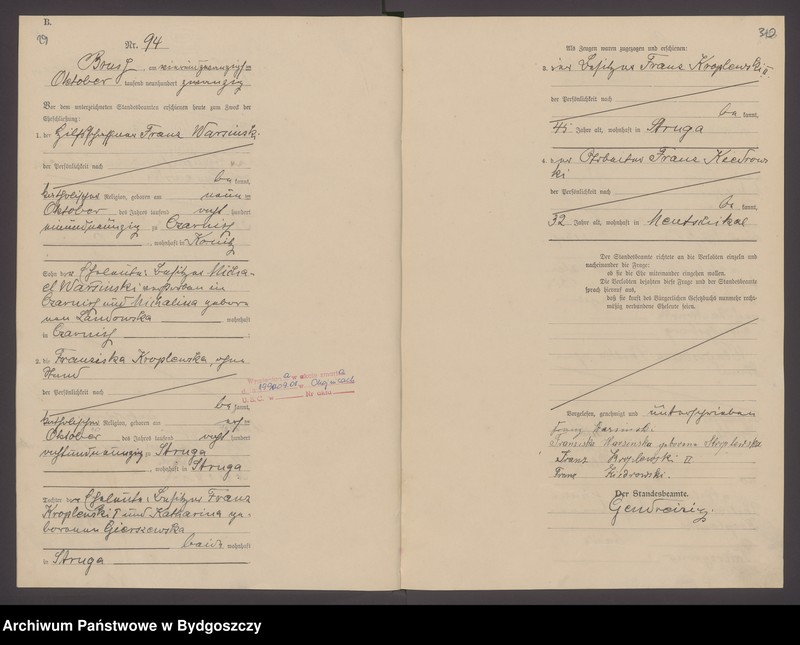 B.
Nr. 94
Brusy am vierundzwanzigsten
Oktober tausend neunhundert zwanzig
Vor dem unterzeichneten Standesbeamten erschienen heute zum Zweck der
Eheschließung:
1. der Hilfsschaffner Franz Warsinski
der Persönlichkeit nach
be kannt,
katholischer Religion, geboren am neun-
Oktober des Jahres tausend acht hundert
einundneunzig zu Czarnisch
, wohnhaft in Konitz
Sohn der Eheleute: Besitzer Micha-
el Warsinski verstorben in
Czarnisch und Michalina gebor-
nen Landowska wohnhaft
in Czarnisch
2. die Franziska Kroplewska, ohne
Stand
der Persönlichkeit nach
be kannt,
katholischer Religion, geboren am
Oktober des Jahres tausend acht hundert
achtundneunzig zu Struga
, wohnhaft in Struga
Tochter der Eheleute: Besitzer Franz
Kroplewski I und Katharina ge-
borenen Gierszewska
beide wohnhaft
in Struga
312
Als Zeugen waren zugezogen und erschienen:
3. der Besitzer Franz Kroplewski II.
der Persönlichkeit nach
be kannt,
45 Jahre alt, wohnhaft in Struga
4. der Franz Kiedrow-
ski
der Persönlichkeit nach
be kannt,
32 Jahre alt, wohnhaft in Mentschikal
Der Standesbeamte richtete an die Verlobten einzeln und
nacheinander die Frage:
ob sie die Ehe miteinander eingehen wollen.
Die Verlobten bejahten diese Frage und der Standesbeamte
sprach hierauf aus,
daß sie kraft des Bürgerlichen Gesetzbuchs nunmehr recht-
mäßig verbundene Eheleute seien.
Vorgelesen, genehmigt und unterschrieben
Franz Warsinski.
Franziska Warsinska geborene Kroplewska
Franz Kroplewski II
Franz Kiedrowski.
Der Standesbeamte.
Archiwum Państwowe w Bydgoszczy